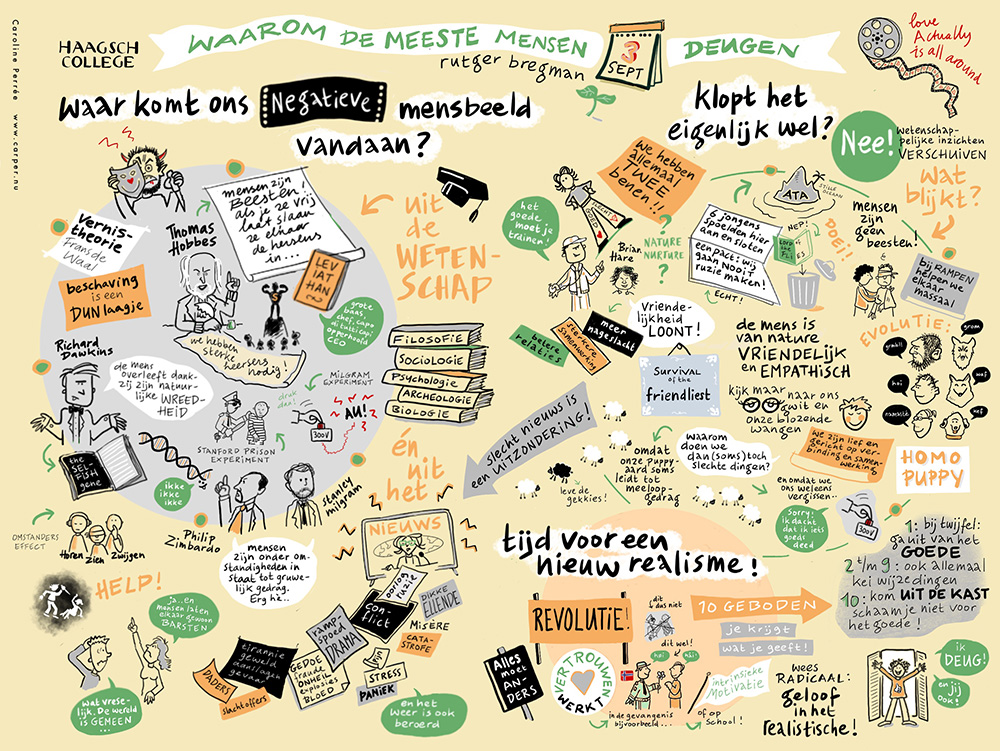 Caroline Perrée www.carper.nu
HAAGSCH
COLLEGE
WAAROM DE MEESTE MENSEN
DEUGEN
rutger bregman
3
SEPT
love
Actually
is all around
waar komt ons Negatieve mensbeeld
vandaan?
mensen zijn
BEESTEN!
als je ze vrij
laat slaan
ze elkaar
de hersens
in...
Vernis-
theorie
Frans de
Waal
Thomas
Hobbes
LEV
IAT
HAN
beschaving
is een
DUN laagje
grote
baas,
chef, capo
di tutti capi
opperhoofd
CEO
we hebben
sterke
heersers
nodig!
uit
de
WETEN-
SCHAP
FILOSOFIE
SOCIOLOGIE
PSYCHOLOGIE
ARCHEOLOGIE
BIOLOGIE
Richard
Dawkins
de mens
overleeft dank-
zij zijn natuur-
lijke WREED-
HEID
MILGRAM
EXPERIMENT
druk
dan!
AU!
300V
STANFORD PRISON
EXPERIMENT
the
SEL-
FISH
gene
ikke
ikke
ikke
Philip
Zimbardo
stanley
milgram
én
uit
het
NIEUWS
OMSTANDERS
EFFECT
Horen Zien Zwijgen
mensen
zijn onder om-
standigheden in
staat tot gruwe-
lijk gedrag.
Erg hè..
HELP!
ja.. en
mensen laten
elkaar gewoon
BARSTEN
wat vrese-
lijk. De wereld
is GEMEEN
oorlog
ruzie
con-
flict
DIKKE
ELLENDE
MISÈRE
CATA-
STROFE
ramp
spoed
DRAMA
tirannie
geweld
aanslagen
gevaar
DADERS
slachtoffers
GEDOE
fraude
ONHEIL
explosies
BLOED
PIJN
STRESS
PANIEK
en het
weer is ook
beroerd
klopt het
eigenlijk wel?
Nee!
wetenschap-
pelijke inzichten
VERSCHUIVEN
we hebben
allemaal
TWEE
benen!!
het
goede
moet je
trainen!
Brian
Hare
NATURE
NURTURE?
?
6 jongens
spoelden hier
aan en sloten
een pact: wij
gaan nooit
ruzie maken!
ECHT!
ATA
STILLE
OCEAAN
NEP!
LORD
OF THE
FLIES
DOEI!
wat
blijkt?
mensen
zijn
geen
beesten!
bij RAMPEN
helpen we
elkaar
massaal
Vriende-
lijkheid
LOONT!
betere
relaties
sterkere
samenwerking
meer
nageslacht
SURVIVAL
of the
friendliest
de mens is
van nature
VRIENDELIJK
en EMPATHISCH
kijk maar
naar ons
oogwit en
onze blozende
wangen
EVOLUTIE:
grom
hoi
waf
wef
we zijn lief en
gericht op ver-
binding en samen-
werking
HOMO
PUPPY
slecht nieuws is
UITZONDERING!
leve de
gekkies!
omdat
onze puppy
aard soms
leidt tot
meeloop-
gedrag
waarom
doen we
dan (soms) toch
slechte dingen?
en omdat we
ons weleens
vergissen..
Sorry:
ik dacht
dat ik iets
goeds
deed
300V
tijd voor een
nieuw realisme!
REVOLUTIE!
Alles
moet
AN-
DERS
VERTROUWEN
WERKT
dit
dus niet
dit wel!
hoi
hoi!
in de gevangenis
bijvoorbeeld...
of op
school!
10 GEBODEN
je krijgt
wat je geeft!
intrinsieke
Motivatie
wees
RADICAAL:
geloof
in het
realistische!
1: bij twijfel:
ga uit van het
GOEDE
2 t/m 9: ook allemaal
kei wijze dingen
10: kom UIT DE KAST
schaam je niet voor
het goede!
ik
DEUG!
en jij
ook!